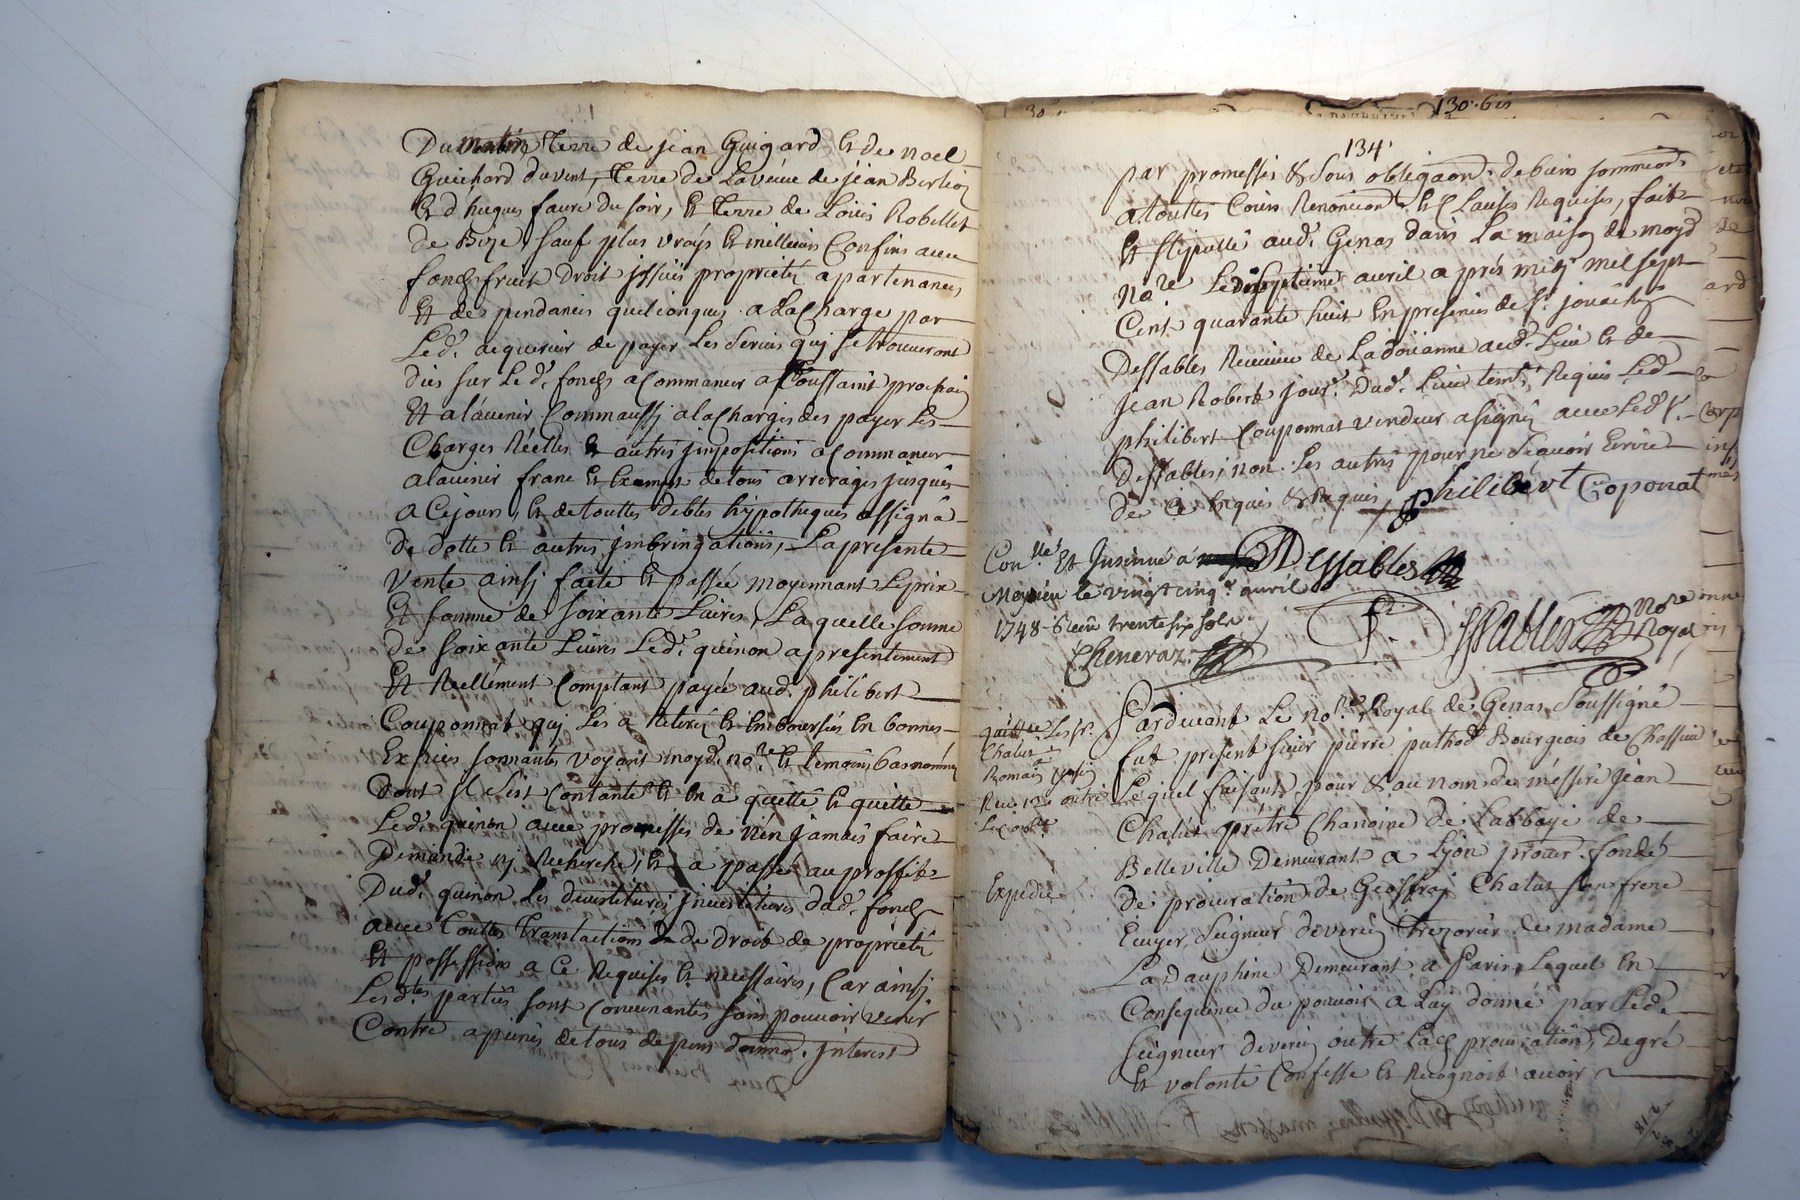 Du matin, Terre de jean Guigard Et de noel
Guichard du vent, Terre de La véuve de jéan Berlioz
Et d hugues faure du soir, Et Terre de Loüis Robellet
de Bize, sauf plus vrays Et meilleurs Confins avec
fonds fruit Droit jssües proprietés apartenances
Et dependances quelconques a La Charge par
Led. aquereur de payer Les servis quj se trouveront
dus sur Led. fonds a Commancer a Toussaint prochain
Et a l'avenir Comm'aussj a la Charge des payer Les
Charges Réelles Et autres jmpositions a Commancer
alavenir franc Et Exempt de tous arrerages jusques
a Cejourd Et de touttes debtes hypotheques assigna
de dotte Et autres jmbringations, La presente
Vente ainsj faite Et passée moyennant Le prix
Et somme de soixante Livres, La quelle somme
de soixante Livres Led. quinon a presentement
Et Reellement Comptant payée aud. philibert
Couponnat quj Les a Retirés Et Emboursées En bonnes
Especes sonnantes voyant moyd. no.re Et temoins bas nommés
dont jl s'est Contanté Et En a quitté Et quitte
Led. quinon avec promesses de n'en jamais faire
Demande nj Recherche, Et a passé au proffit
Dud. quinon Les devestitures jnvestitures dud. fonds
avec Touttes Translactions de droit de proprieté
Et possessions a Ce Requises Et necessaires, Car ainsj
Lesd.tes parties sont Convenantes sans pouvoir venir
Contre a peines de tous depens domma. jnterest
130. bis
134.
par promesses & sous obligaon. de biens
a touttes Cours Renonciaon. Et Clauses Requises, fait
Et stipullé aud. Genas dans La maison de moyd
no.re Le avril a prés midj mil sept
Cent quarante huit En presences de S.r
Dessables Receveur de La doüanne aud. Lieu Et de
Jean Robert jour.r Dud. Lieu tem.s Requis Led
philibert Couponnat vendeur a signé avec Led. S.r
Dessables, non Les autres pour ne sçavoir Ecrire
de Ce Enquis & Requis, philibert Coponat
Con.llé Et Insinué a
Meyzieu le vingt cinq.e avril
1748. Receu trente six sols
Cheneraz
Dessables
Dessables No.re Royal
Pardevant Le no.re Royal de Genas soussigné
fut present sieur pierre puthod Bourgeois de Chassieu
Lequel faisant pour & au nom de méssire Jéan
Chalut prétre Chanoine de L'abbaye de
Belleville Demeurant a Lyon procur. fondé
de procuration de Geoffroj Chalut son frere
Ecuyer, seigneur de verin Trezorier de madame
La Dauphine Demeurant a Paris Lequel En
Consequence du pouvoir a Luy donné par Led.
seigneur de verin outre Lad. procuration, De gré
Et volonté Confesse Et Recognoit avoir
Expedié